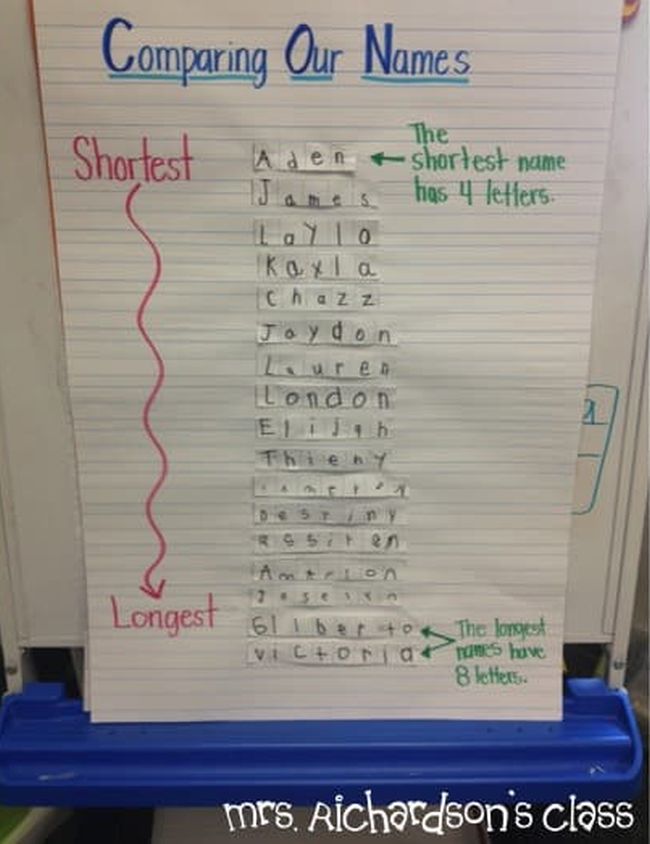 Comparing Our Names
Shortest
Aden
The
shortest name
has 4 letters.
James
Layla
Kayla
Chazz
Jaydon
Lauren
London
Elijah
Thieny
Destiny
Longest
Gilberto
victoria
The longest
names have
8 letters.
mrs. Richardson's class